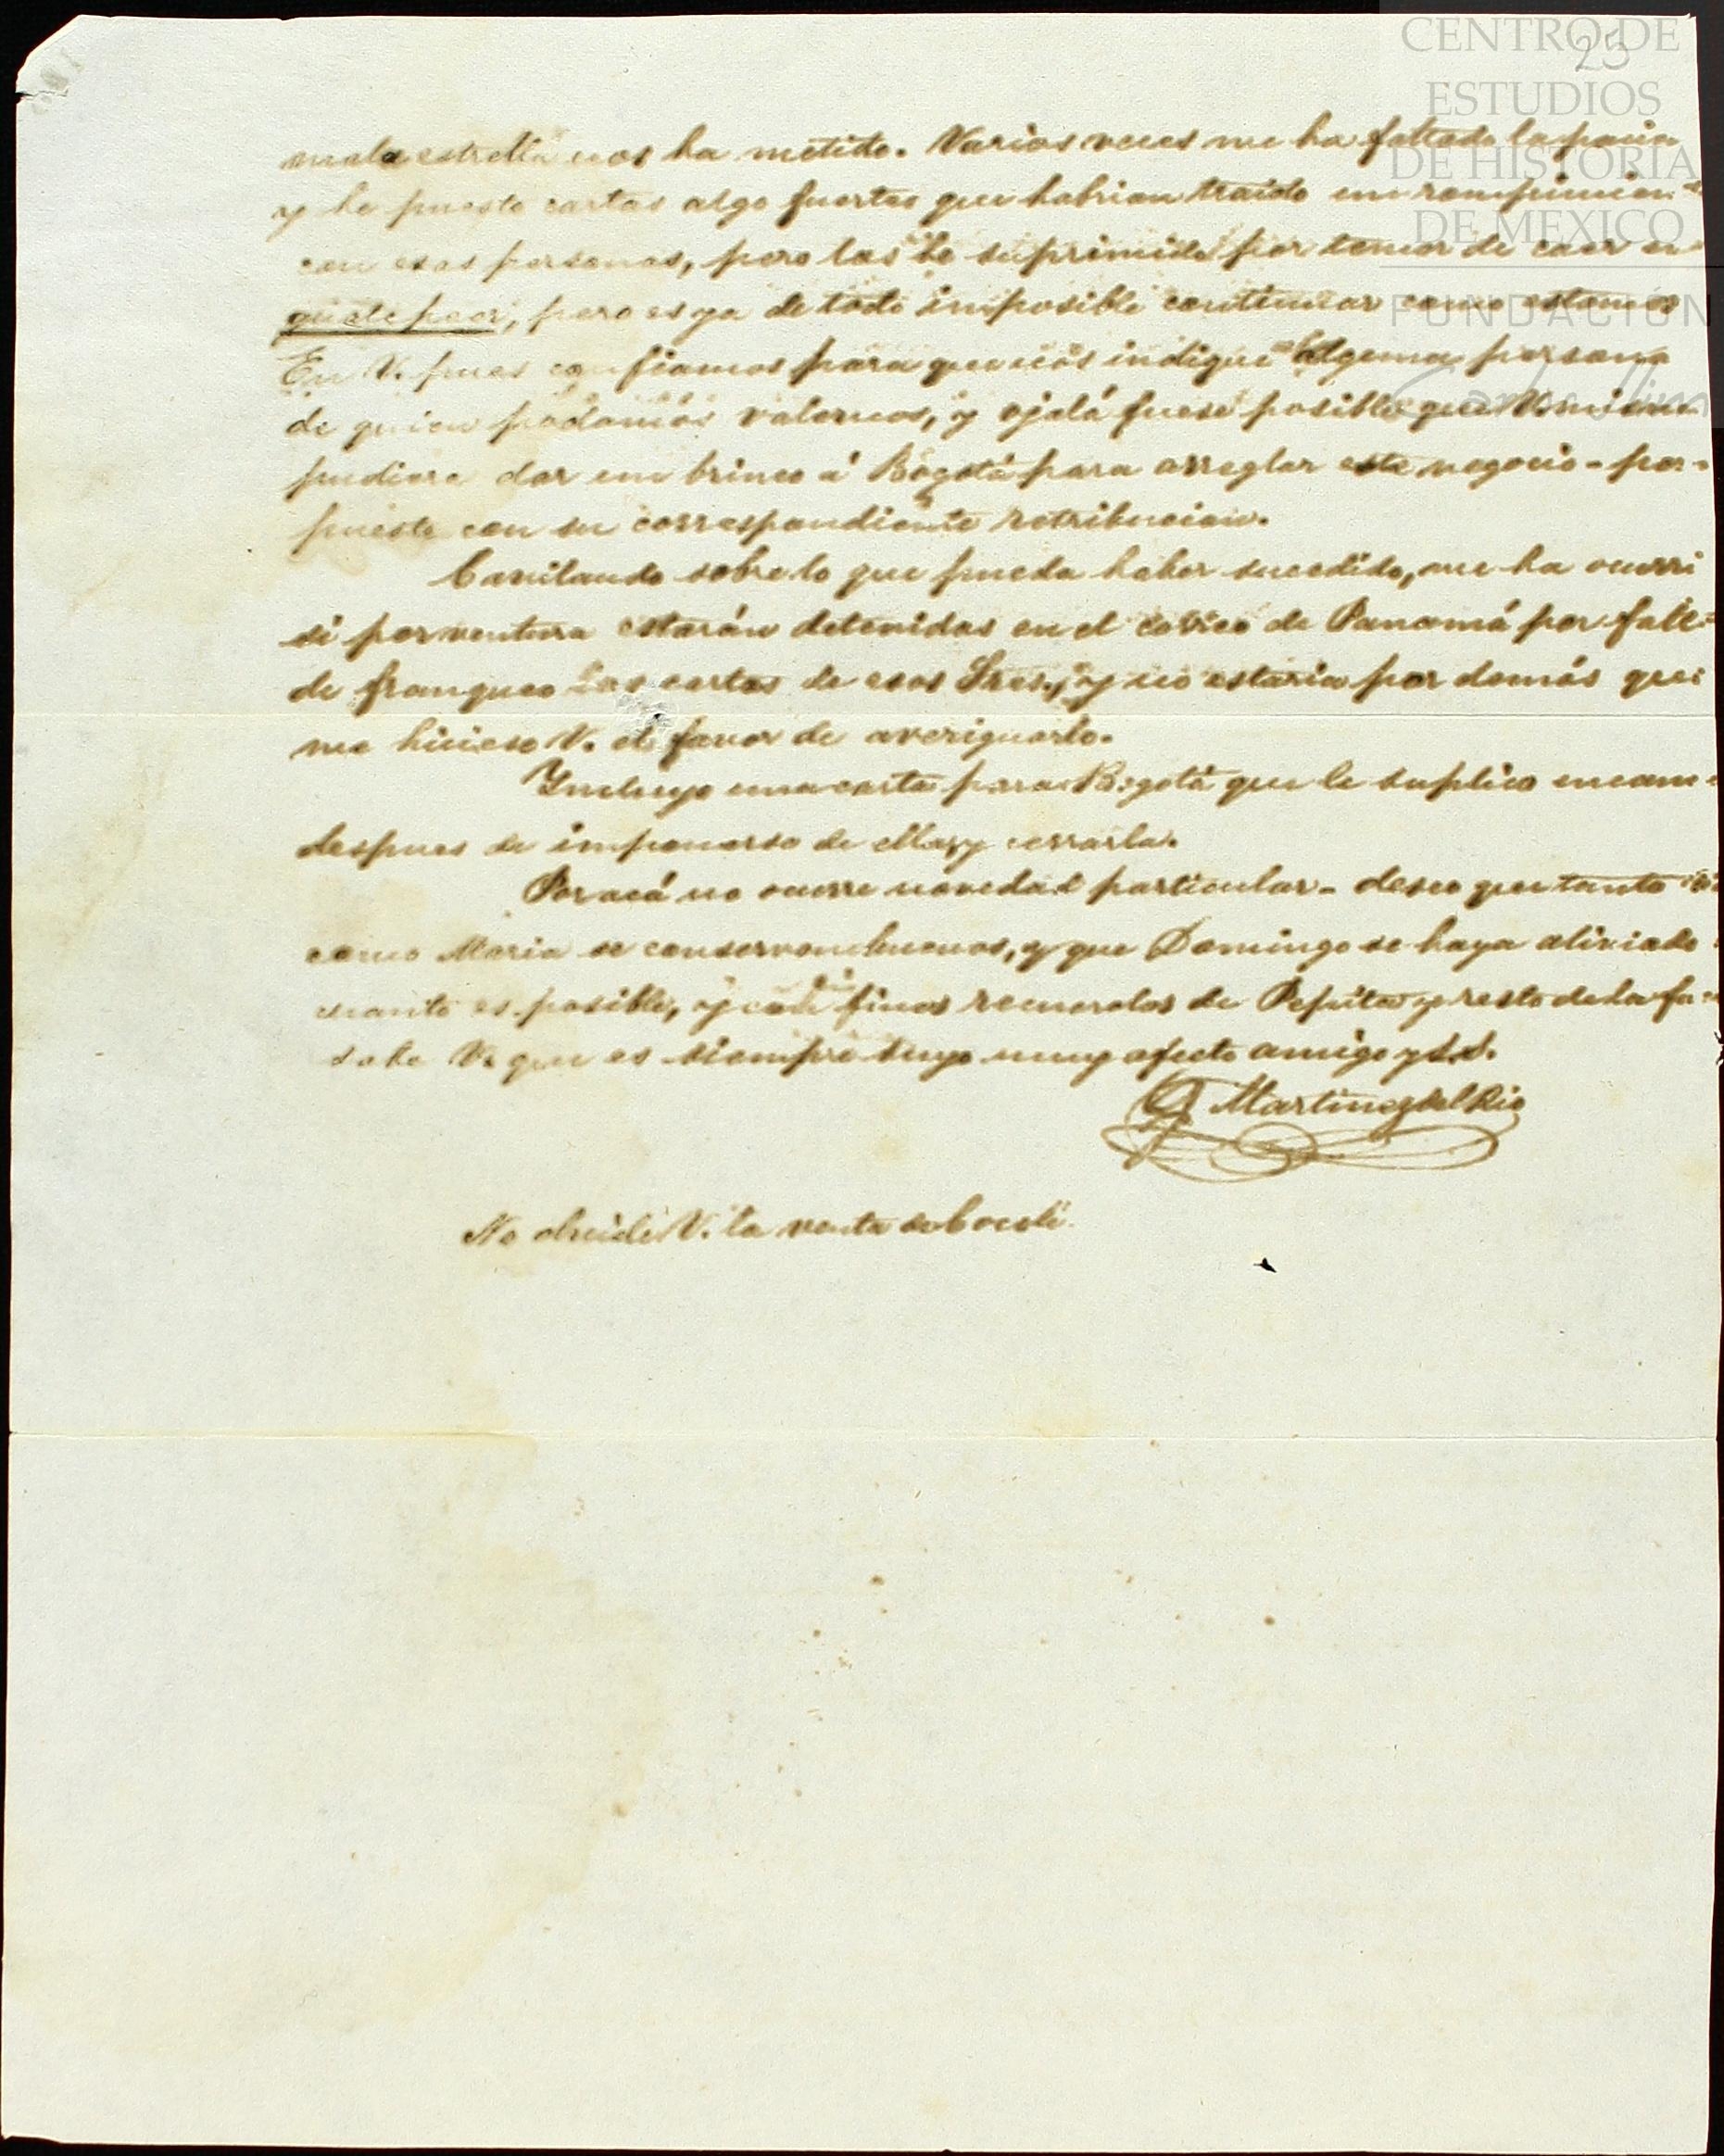 CENTRO DE
25
ESTUDIOS
DE HISTORIA
DE MEXICO
FUNDACIÓN
Carlos Slim
mala estrella nos ha metido. Varias veces me ha faltado la pacien
y he puesto cartas algo fuertes que habrian traido un rompimien
con esas personas, pero las he suprimido por temor de caer en
guatepeor, pero es ya de todo imposible continuar como estamos
En V. pues confiamos para que nos indique alguna persona
de quien podamos valernos, y ojalá fuese posible que V. mismo
pudiera dar un brinco á Bogotá para arreglar este negocio - por
puesto con su correspondiente retribucion.
Cavilando sobre lo que pueda haber sucedido, me ha ocurri
si por ventura estarán detenidas en el correo de Panamá por falt
de franqueo las cartas de esos Sres., y no estaria por demás que
me hiciese V. el favor de averiguarlo.
Incluyo una carta para Bogotá que le suplico encam
despues de imponerse de ella y cerrarla.
Por acá no ocurre novedad particular - deseo que tanto
como Maria se conserven buenos, y que Domingo se haya aliviado
cuanto es posible, y con finos recuerdos de Pepita y resto de la fa
sabe V. que es siempre suyo muy afecto amigo y S.S.
Martinez del Rio
No olvide V. la venta de